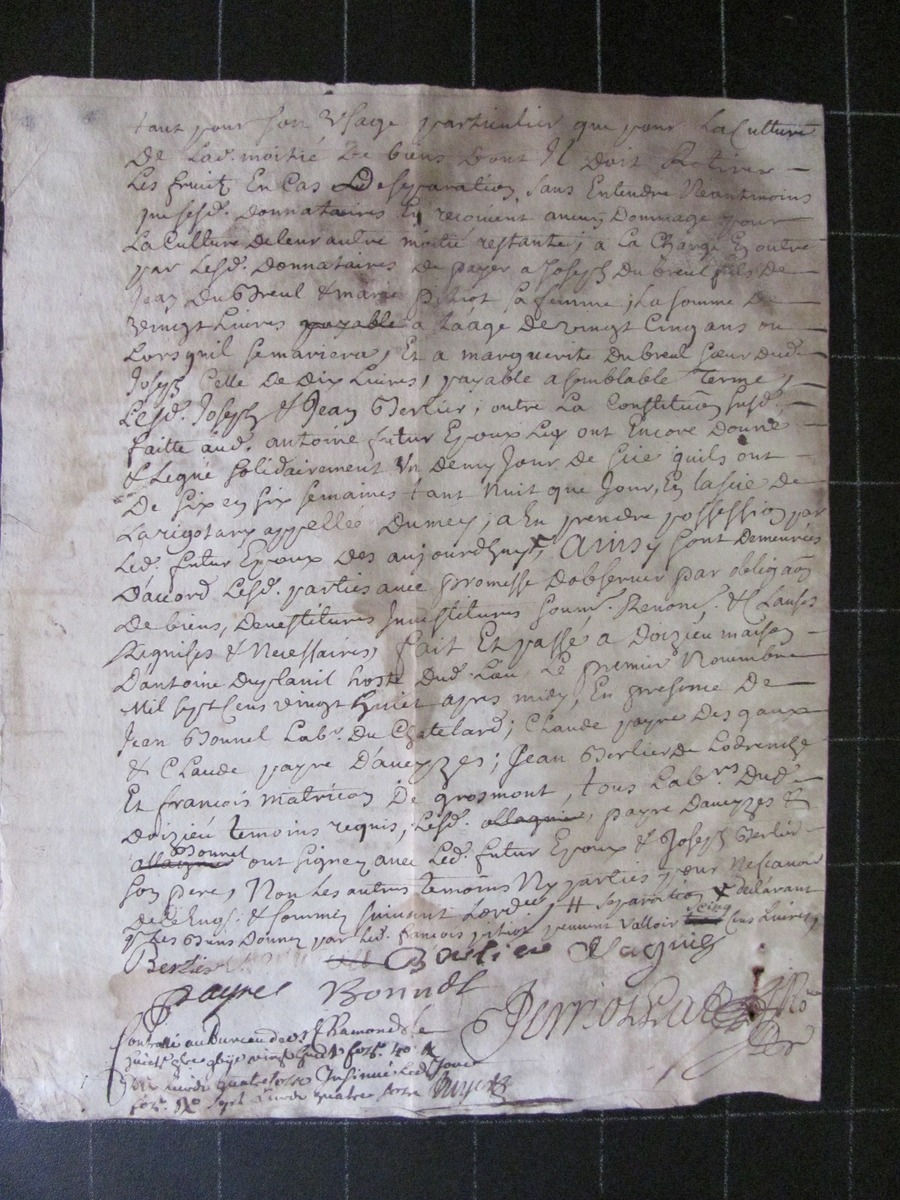 tant pour son usage particulier que pour la Culture
De lad. moitié de biens dont Il doit Retirer
les fruits En Cas De separation, sans Entendre Neantmoins
que lesd. donnataires En recoivent aucun Dommage pour
La Culture de leur autre moitié restante; a La Charge En outre
par Lesd. Donnataires de payer a Joseph Du breuil fils de
Jean Du Breul & marie pitiot sa femme; La somme De
vingt Livres payable a Laâge De vingt Cinq ans ou
Lorsquil se mariera, Et a marguerite Dubreul sœur dud.
Joseph Celle De Dix Livres, payable a semblable Terme,
Lesd. Joseph & Jean Berlier, outre La Constitution susd.
faitte aud. antoine futur Epoux Luy ont Encore Donné
& Legué solidairement Un demy Jour de scie quils ont
De six en six semaines tant Nuit que Jour, En la scie de
La rigotary appellée Dumey; a En prendre possession par
Led. futur Epoux des aujourdhuy, Ainsy sont Demeurées
D'accord Lesd. parties avec promesse d'observer par obligaon
De biens, Devestitures Investitures soum. Renon. & Clauses
Requises & Necessaires, fait Et passé a Doizieu maison
D'antoine Duplanil hoste Dud. Lieu Le premier Novembre
Mil sept Cens vingt huict apres midy, En presence De
Jean Bonnel Labr. Du Chatelard; Claude payre Des gaux
& Claude payre D'aveyzes; Jean Berlier de Lodrenche
Et françois matricon De grosmont, tous Labrs. Dud.
Doizieu temoins requis, Lesd. payre Daveyzes &
Bonnel ont signez avec Led. futur Epoux & Joseph Berlier
son pere, Non Les autres temoins Ny parties pour Ne scavoir
De ce Enqs. & sommez suivant Lordce. # separation x declarant
que Les biens Donnez par Led. françois pitiot peuvent valloir cinq Cens Livres
Berlier Berlier
Payre Bonnel
Controllé au Bureau de St Chamond le